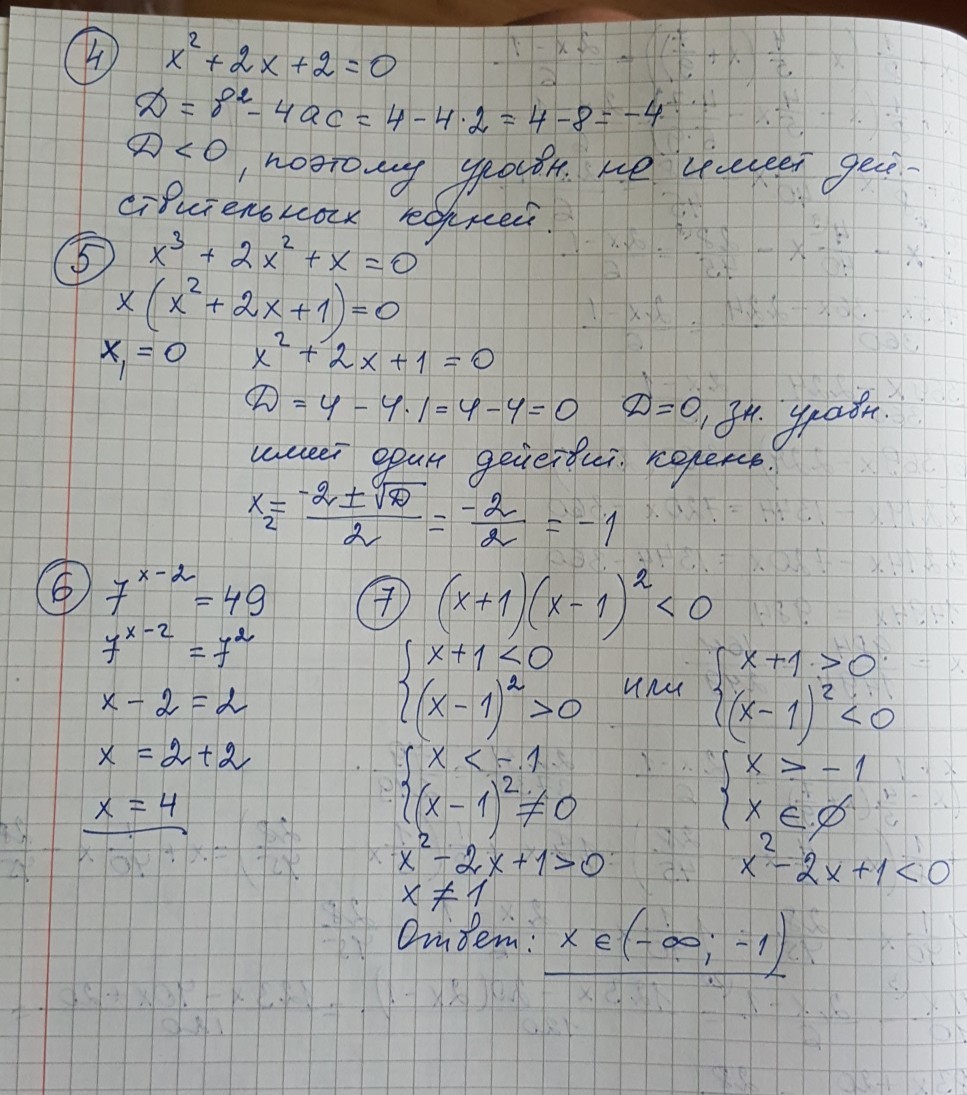 ④ x² + 2x + 2 = 0
D = b² - 4ac = 4 - 4·2 = 4 - 8 = -4
D < 0, поэтому уравн. не имеет дей-
ствительных корней.
⑤ x³ + 2x² + x = 0
x(x² + 2x + 1) = 0
x₁ = 0 x² + 2x + 1 = 0
D = 4 - 4·1 = 4 - 4 = 0 D = 0, зн. уравн.
имеет один действит. корень.
x₂ = (-2 ± √D)/2 = -2/2 = -1
⑥ 7^(x-2) = 49
7^(x-2) = 7²
x - 2 = 2
x = 2 + 2
x = 4
⑦ (x+1)(x-1)² < 0
{ x+1 < 0 или { x+1 > 0
{ (x-1)² > 0 { (x-1)² < 0
{ x < -1 { x > -1
{ (x-1)² ≠ 0 { x ∈ ∅
x² - 2x + 1 > 0 x² - 2x + 1 < 0
x ≠ 1
Ответ: x ∈ (-∞; -1)